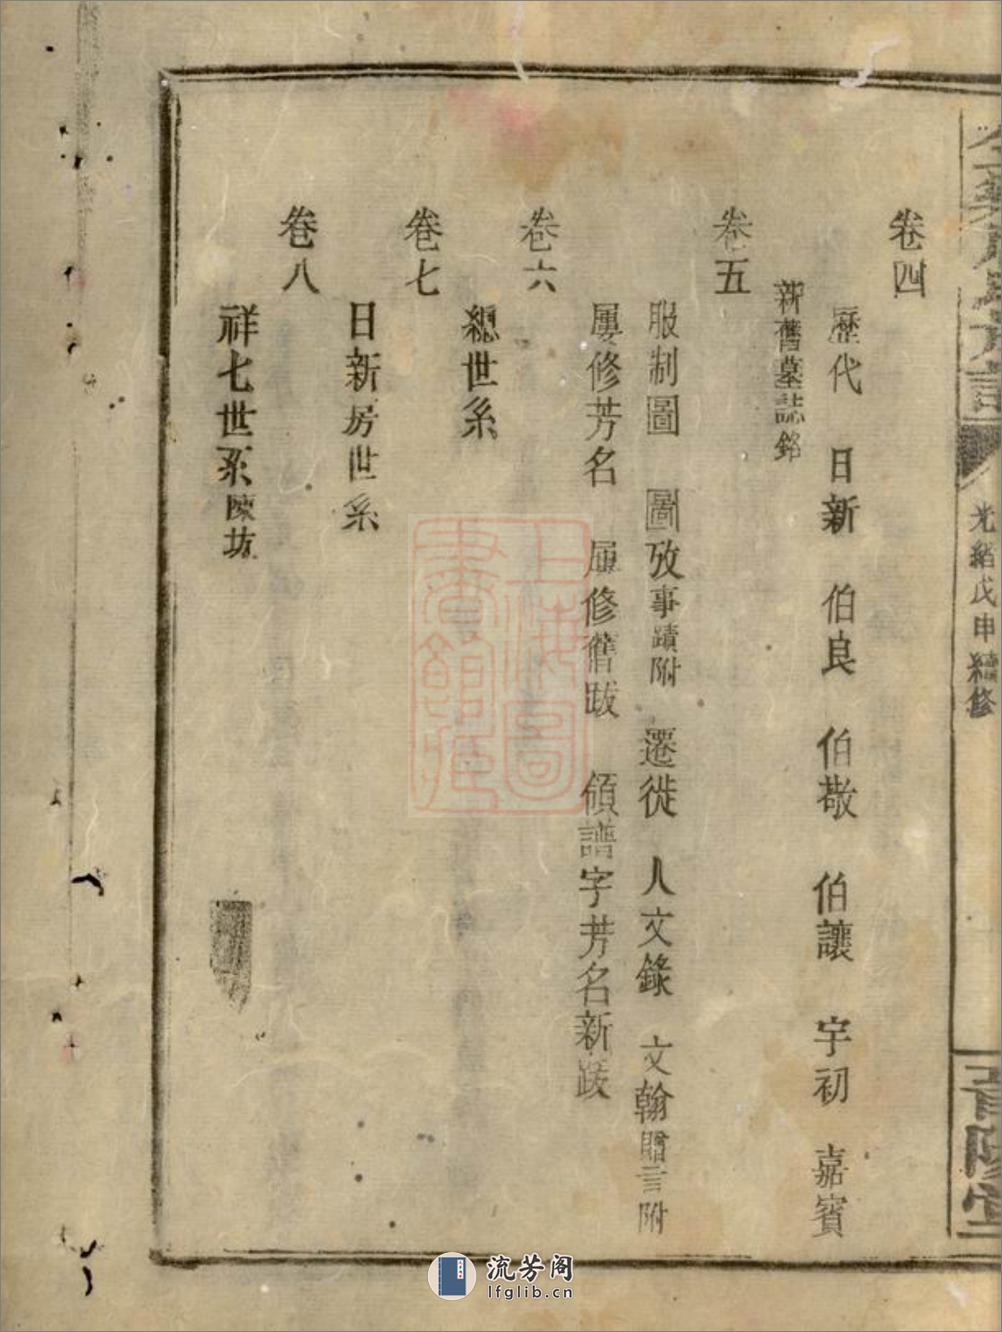 光緒戊申續修
卷四
歷代 日新 伯良 伯敬 伯讓 宇初 嘉賓
新舊墓誌銘
卷五
服制圖 圖攷事蹟附 遷徙 人文錄 文翰贈言附
屢修芳名 屢修舊跋 領譜字芳名新跋
卷六
總世系
卷七
日新房世系
卷八
祥七世系陳坊
上海圖書館藏
流芳阁
lfglib.cn